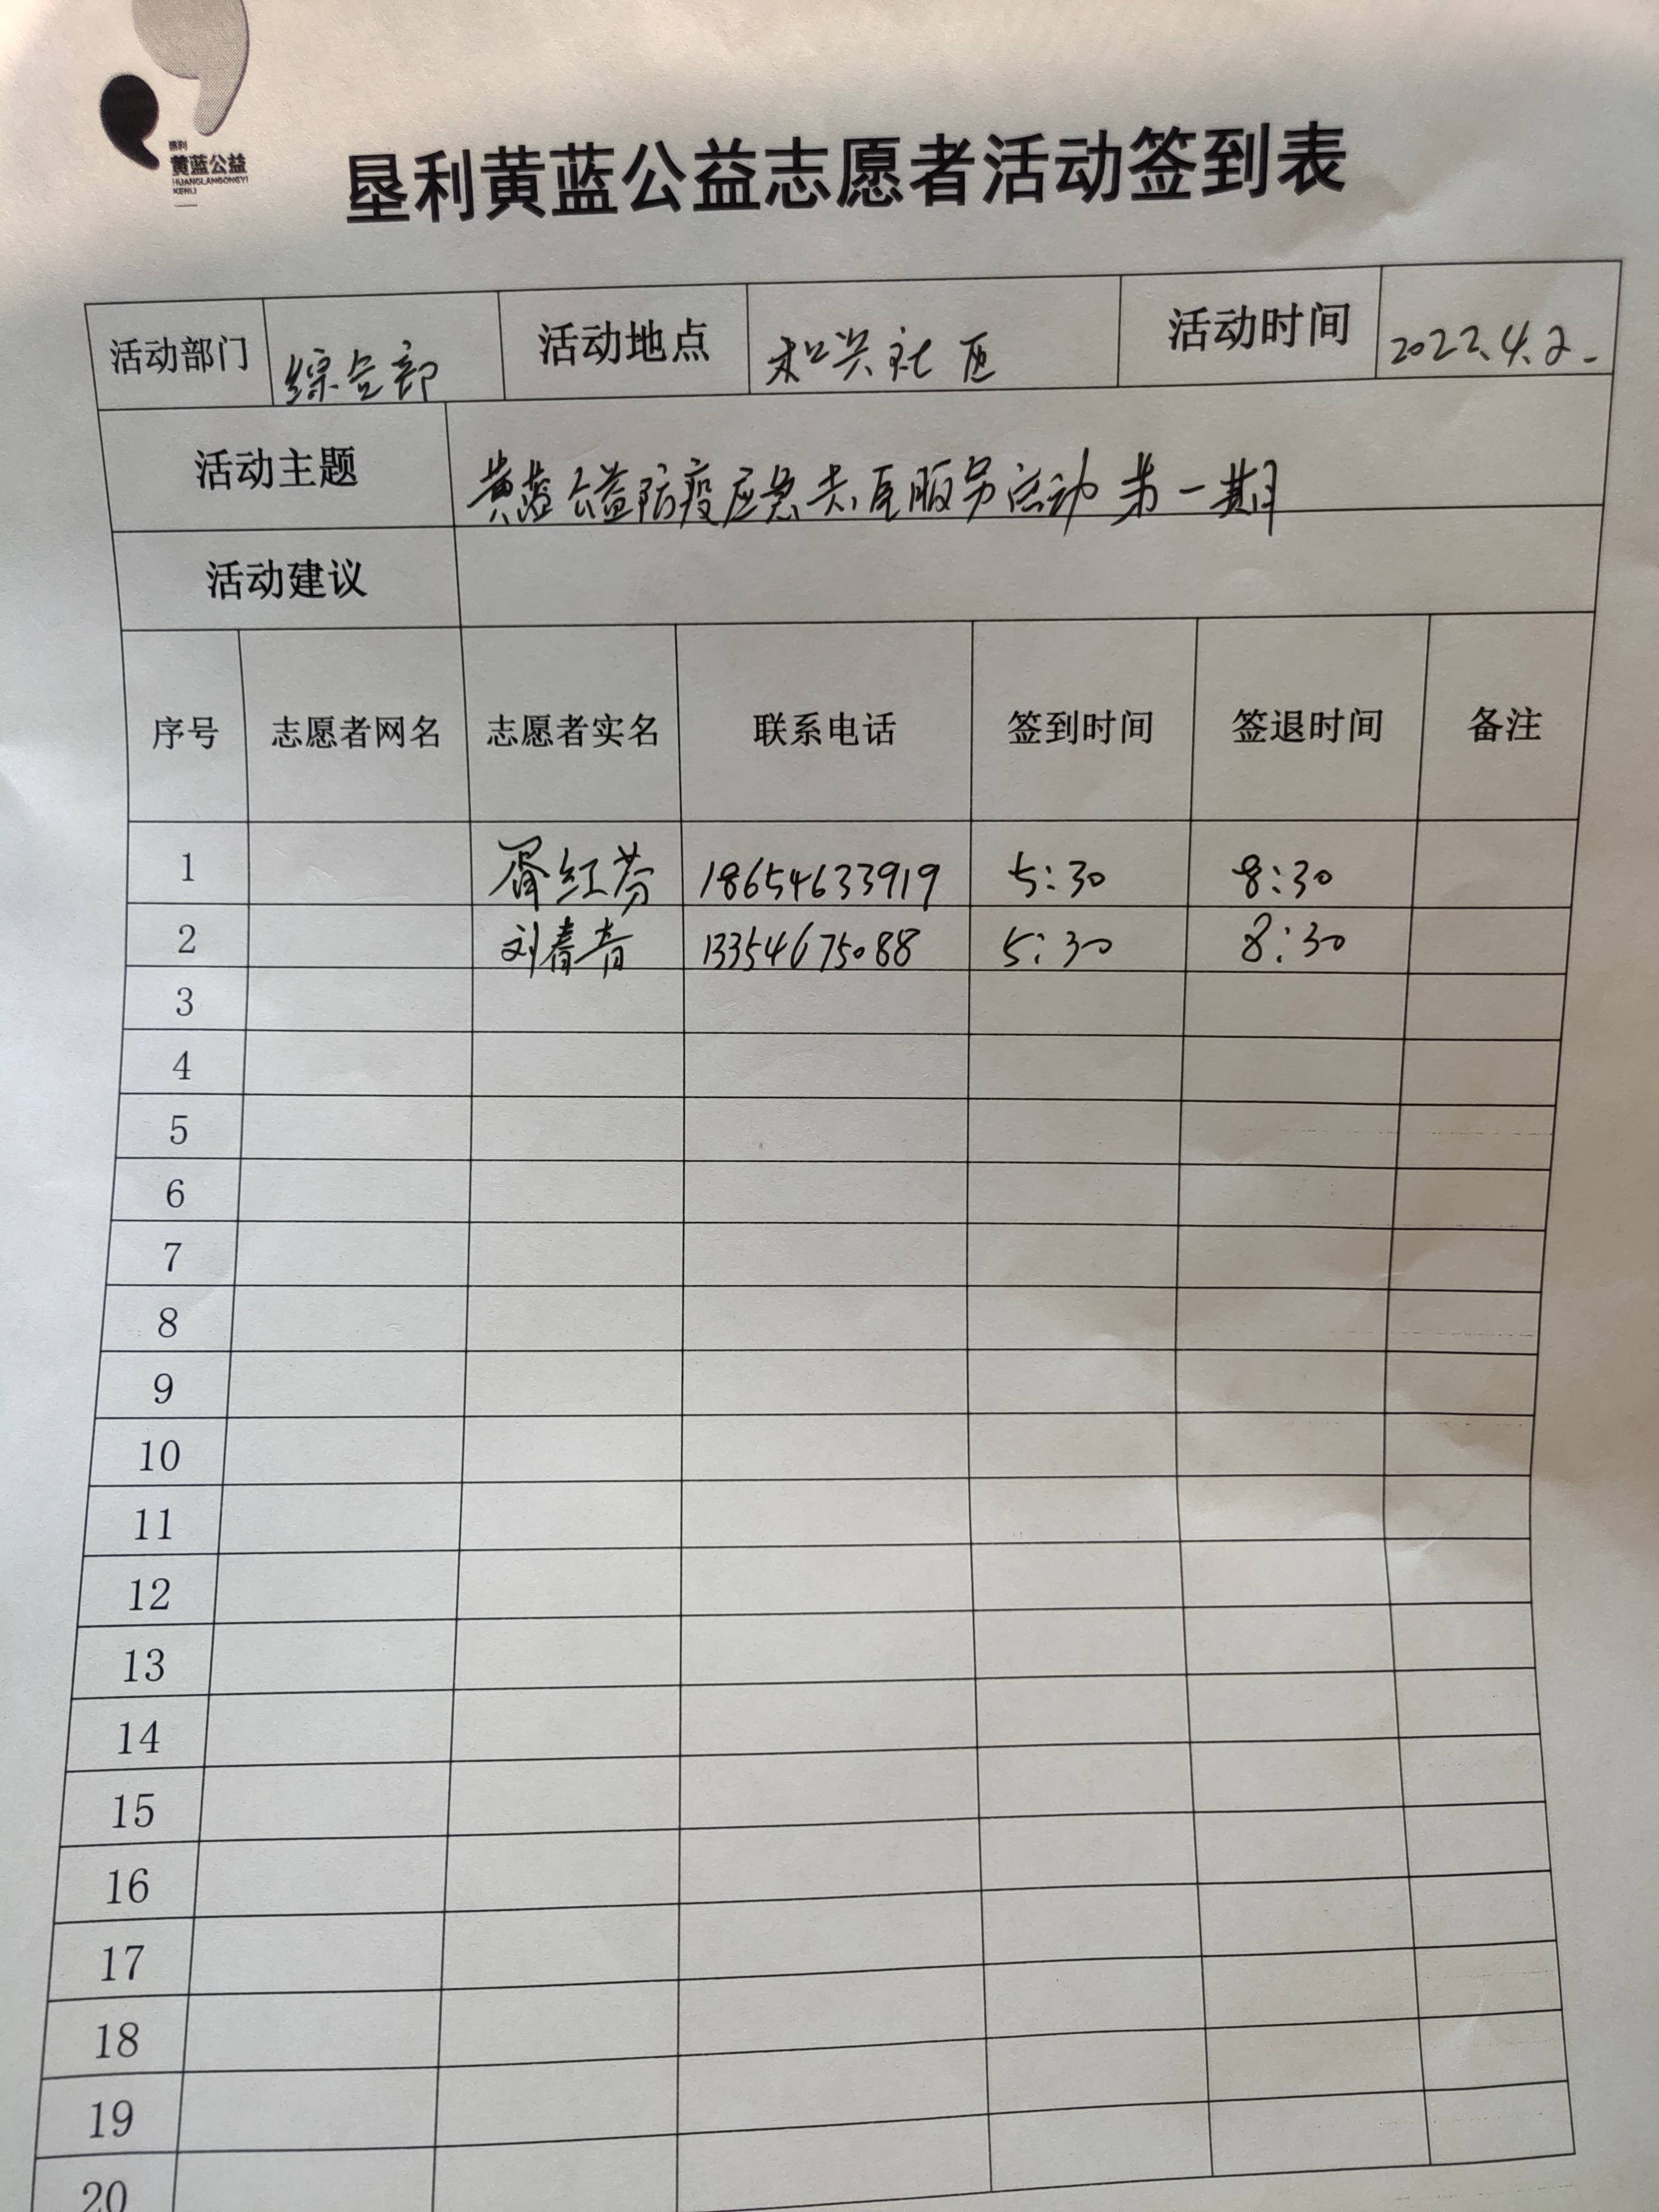 垦利
黄蓝公益
HUANGLANGONGYI
KENLI
垦利黄蓝公益志愿者活动签到表
活动部门 综合部 活动地点 和兴社区 活动时间 2022.4.2.
活动主题 黄蓝公益防疫应急志愿服务活动第一期
活动建议
序号 志愿者网名 志愿者实名 联系电话 签到时间 签退时间 备注
1 胥红芬 18654633919 5:30 8:30
2 刘春青 13354675088 5:30 8:30
3
4
5
6
7
8
9
10
11
12
13
14
15
16
17
18
19
20